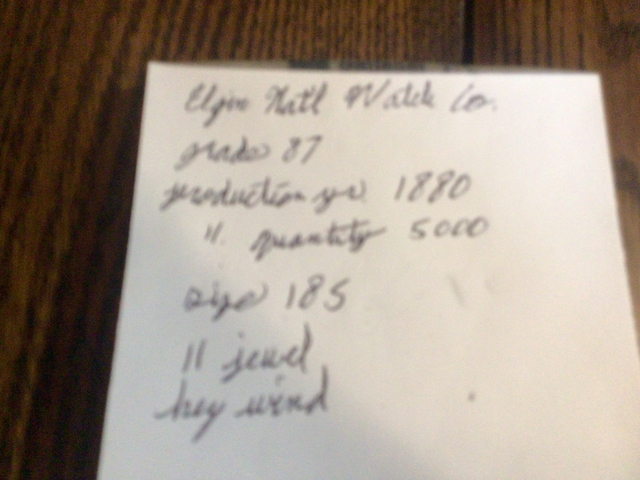 Elgin Nat'l Watch Co.
grade 87
production yr. 1880
" quantity 5000
size 18S
11 jewel
key wind